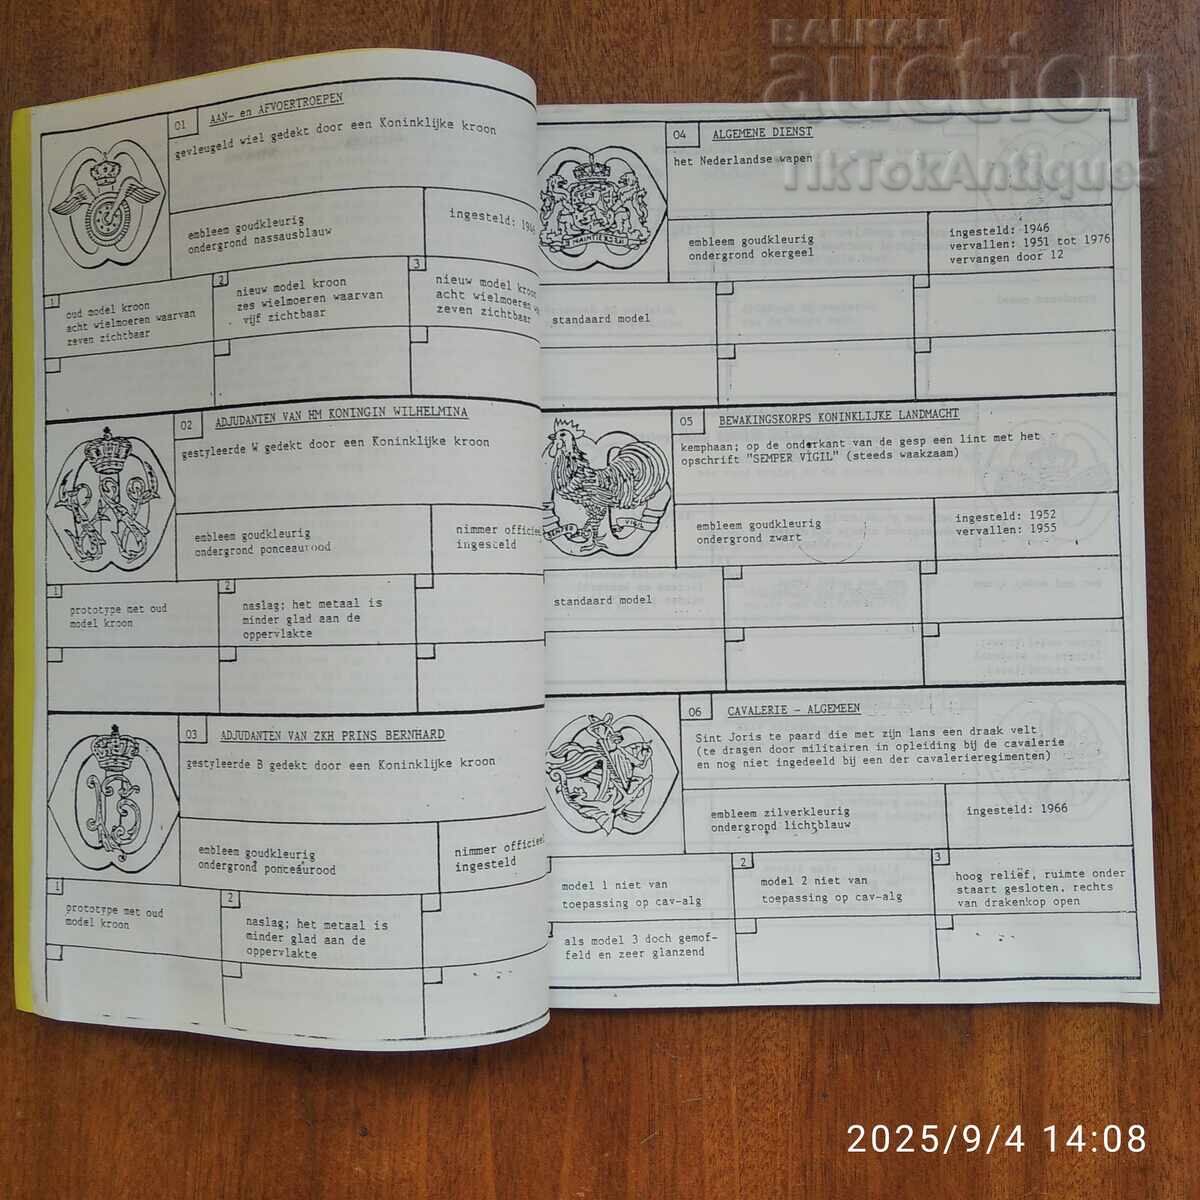 BALKAN
auction
TikTokAntiques
01 AAN- en AFVOERTROEPEN
gevleugeld wiel gedekt door een Koninklijke kroon
embleem goudkleurig
ondergrond nassausblauw
ingesteld: 1946
1
oud model kroon
acht wielmoeren waarvan
zeven zichtbaar
2
nieuw model kroon
zes wielmoeren waarvan
vijf zichtbaar
3
nieuw model kroon
acht wielmoeren
zeven zichtbaar
02 ADJUDANTEN VAN HM KONINGIN WILHELMINA
gestyleerde W gedekt door een Koninklijke kroon
embleem goudkleurig
ondergrond ponceaurood
nimmer officieel
ingesteld
1
prototype met oud
model kroon
2
naslag; het metaal is
minder glad aan de
oppervlakte
03 ADJUDANTEN VAN ZKH PRINS BERNHARD
gestyleerde B gedekt door een Koninklijke kroon
embleem goudkleurig
ondergrond ponceaurood
nimmer officieel
ingesteld
1
prototype met oud
model kroon
2
naslag; het metaal is
minder glad aan de
oppervlakte
04 ALGEMENE DIENST
het Nederlandse wapen
embleem goudkleurig
ondergrond okergeel
ingesteld: 1946
vervallen: 1951 tot 1976
vervangen door 12
standaard model
05 BEWAKINGSKORPS KONINKLIJKE LANDMACHT
kemphaan; op de onderkant van de gesp een lint met het
opschrift "SEMPER VIGIL" (steeds waakzaam)
VIGIL
embleem goudkleurig
ondergrond zwart
ingesteld: 1952
vervallen: 1955
standaard model
06 CAVALERIE - ALGEMEEN
Sint Joris te paard die met zijn lans een draak velt
(te dragen door militairen in opleiding bij de cavalerie
en nog niet ingedeeld bij een der cavalerieregimenten)
embleem zilverkleurig
ondergrond lichtblauw
ingesteld: 1966
model 1 niet van
toepassing op cav-alg
2
model 2 niet van
toepassing op cav-alg
3
hoog reliëf, ruimte onder
staart gesloten, rechts
van drakenkop open
als model 3 doch gemof-
feld en zeer glanzend
2025/9/4 14:08